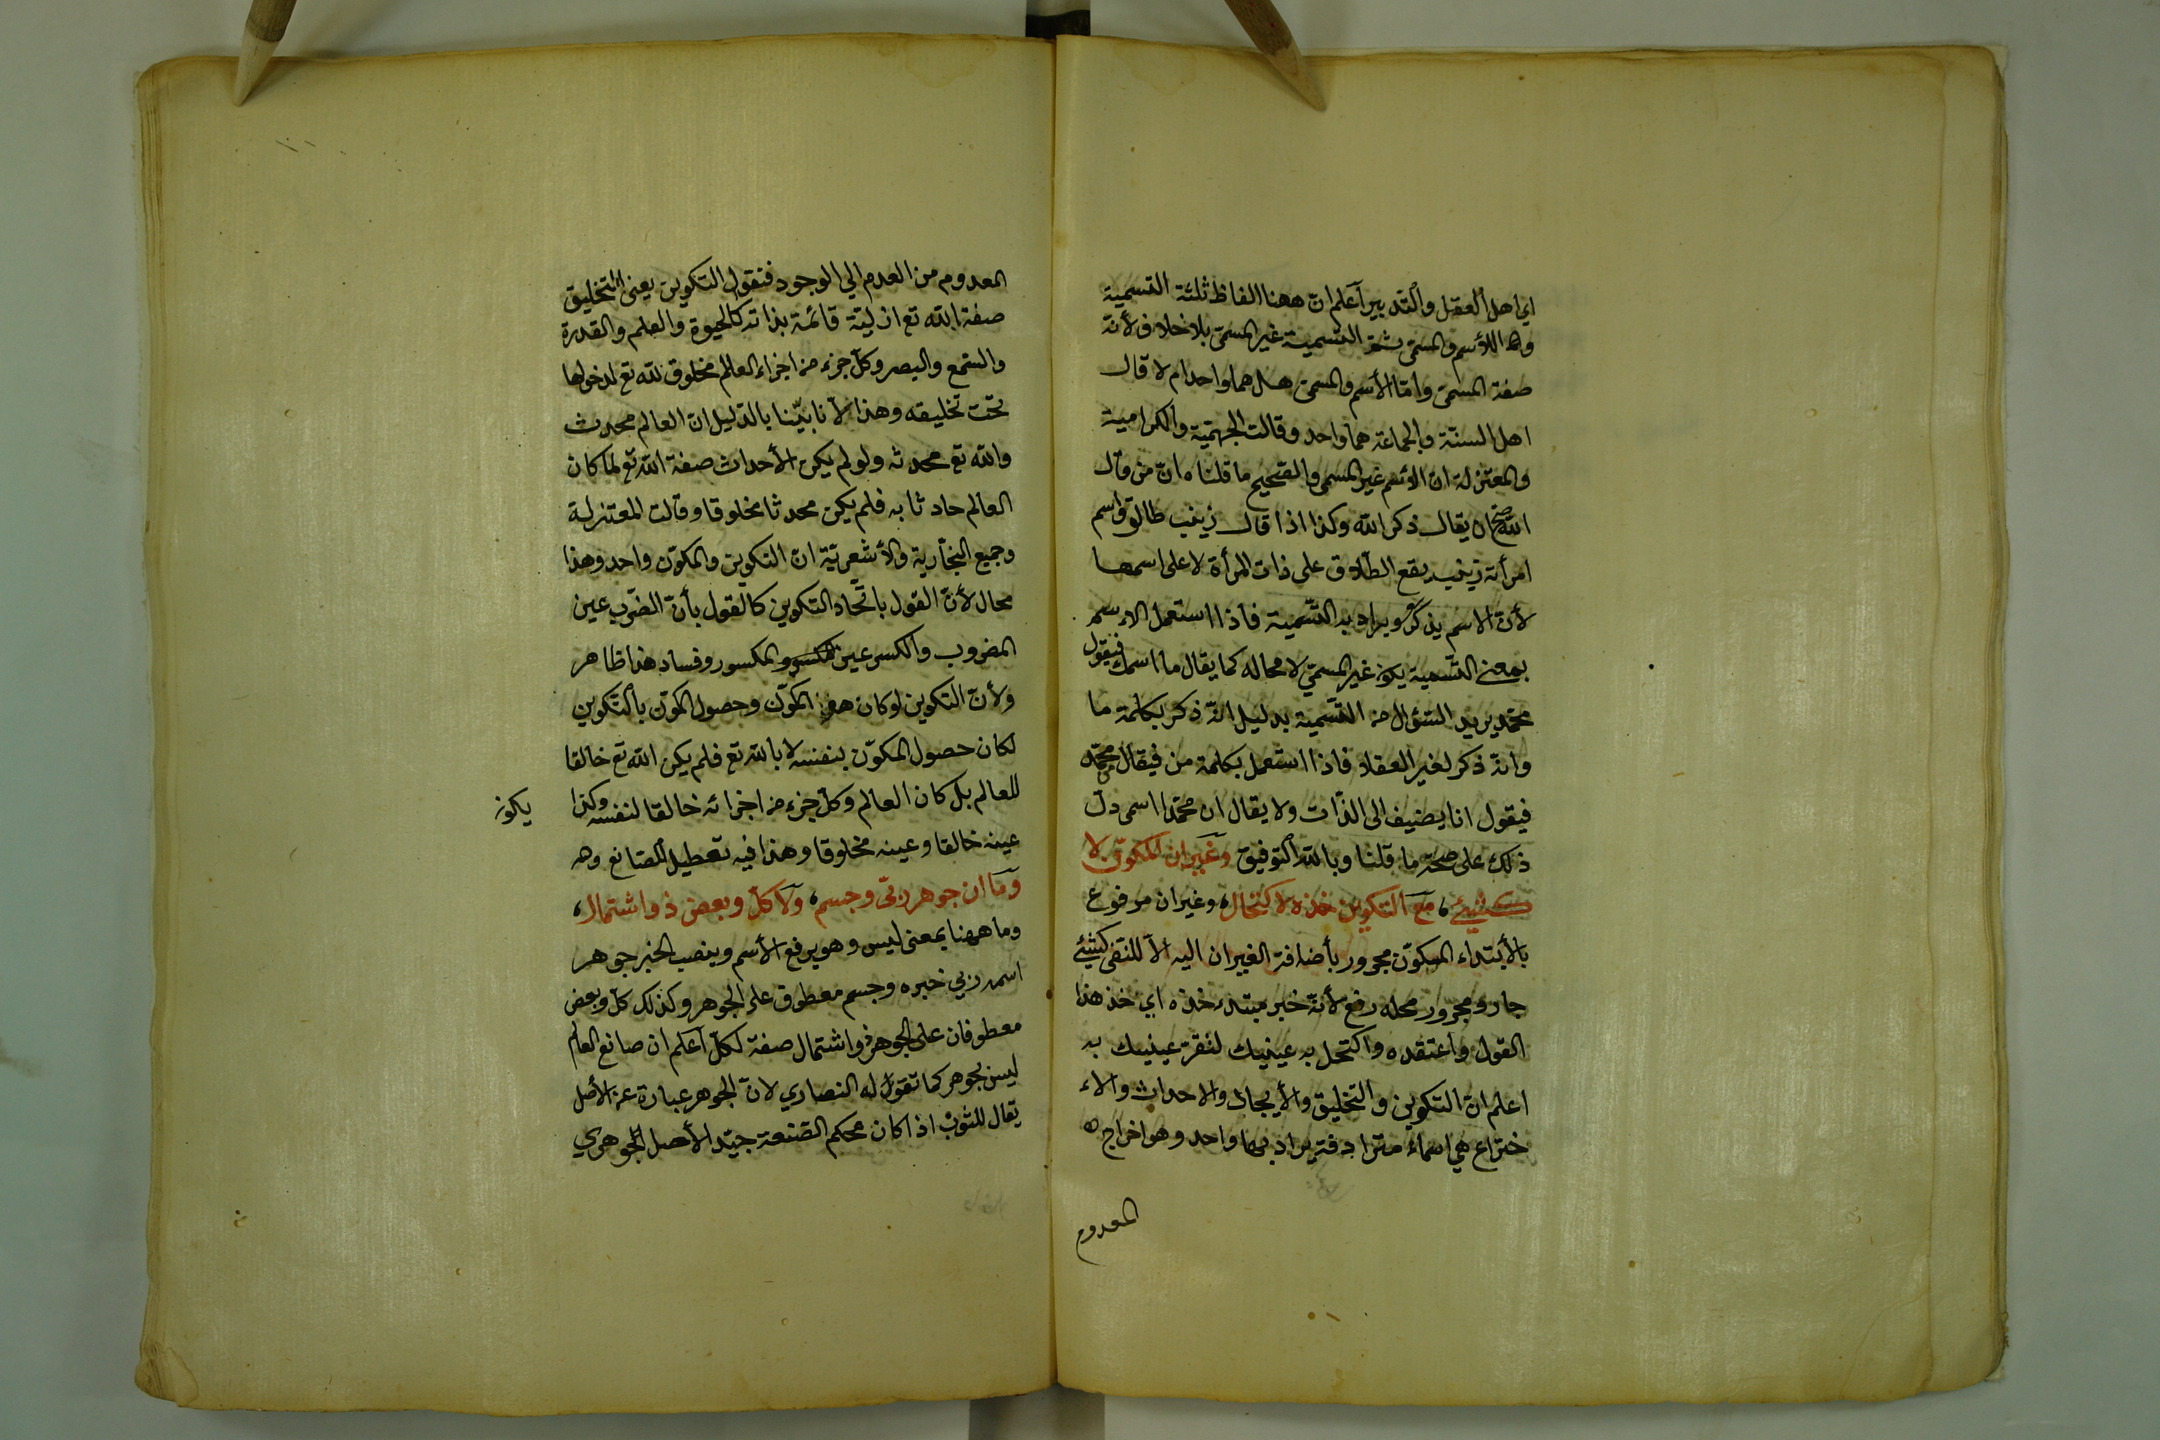 اي اهل العقل والتدبير اعلم ان ههنا الفاظ ثلثة التسمية
والاسم والمسمى ثم التسمية غير المسمى بلا خلاف لانه
صفة المسمى واما الأسم والمسمى هل هما واحد ام لا قال
اهل السنة والجماعة هما واحد وقالت الجهمية والكرامية
والمعتزلة ان الاسم غير المسمى والصحيح ما قلناه ان من قال
الله صح ان يقال ذكر الله وكذا اذا قال زينب طالق واسم
امرأته زينب يقع الطلاق على ذات المرأة لا على اسمها
لأن الاسم يذكر ويراد به التسمية فاذا استعمل الاسم
بمعنى التسمية يكون غير المسمى لا محاله كما يقال ما اسمك فيقول
محمد يريد السؤال من التسمية بدليل انه ذكر بكلمة ما
وانه ذكر لغير العقلا فاذا استعمل بكلمة من فيقال محمد
فيقول انا يضيف الى الذات ولا يقال ان محمدا اسمى دل
ذلك على صحة ما قلنا وبالله التوفيق وغيران المكون لا
كشيئ، مع التكوين خذه لاكتحال، وغيران مرفوع
بالأبتداء المكون مجرور بأضافة الغيران اليه الا للنفى كشيئ
جار ومجرور محله رفع لأنه خبر مبتدء خذه اي خذ هذا
القول واعتقده واكتحل به عينيك لتقر عينيك به
اعلم ان التكوين والتخليق والأيجاد والاحداث والاء
ختراع هي اسماء مترادفة يراد بها واحد وهو اخراج
المعدوم
المعدوم من العدم الي الوجود فنقول التكوين يعنى التخليق
صفة الله تع ازلية قائمة بذاته كالحيوة والعلم والقدرة
والسمع والبصر وكل جزء من اجزاء العالم مخلوق لله تع لدخولها
تحت تخليقه وهذا لأنا بينا بالدليل ان العالم محدث
والله تع محدثه ولو لم يكن الأحداث صفة الله تع لما كان
العالم حادثا به فلم يكن محدثا مخلوقا وقالت المعتزلة
وجميع النجارية والأشعرية ان التكوين والمكون واحد وهذا
محال لأن القول باتحاد التكوين كالقول بأن الضرب عين
المضروب والكسر عين المكسور وفساد هذا ظاهر
ولأن التكوين لو كان هو المكون وحصول المكون بالتكوين
لكان حصول المكون بنفسه لا بالله تع فلم يكن الله تع خالقا
للعالم بل كان العالم وكل جزء من اجزائه خالقا لنفسه وكذا
يكون
عينه خالقا وعينه مخلوقا وهذا فيه تعطيل الصانع وهـ
وما ان جوهر ربي وجسم، ولا كل وبعض ذو اشتمال،
وما ههنا بمعنى ليس وهو يرفع الأسم وينصب الخبر جوهر
اسمه ربي خبره وجسم معطوف على الجوهر وكذلك كل وبعض
معطوفان على الجوهر ذو اشتمال صفة لكل اعلم ان صانع العالم
ليس بجوهر كما تقول له النصاري لان الجوهر عبارة عن الأصل
يقال للثوب اذا كان محكم الصنعة جيد الأصل الجوهري